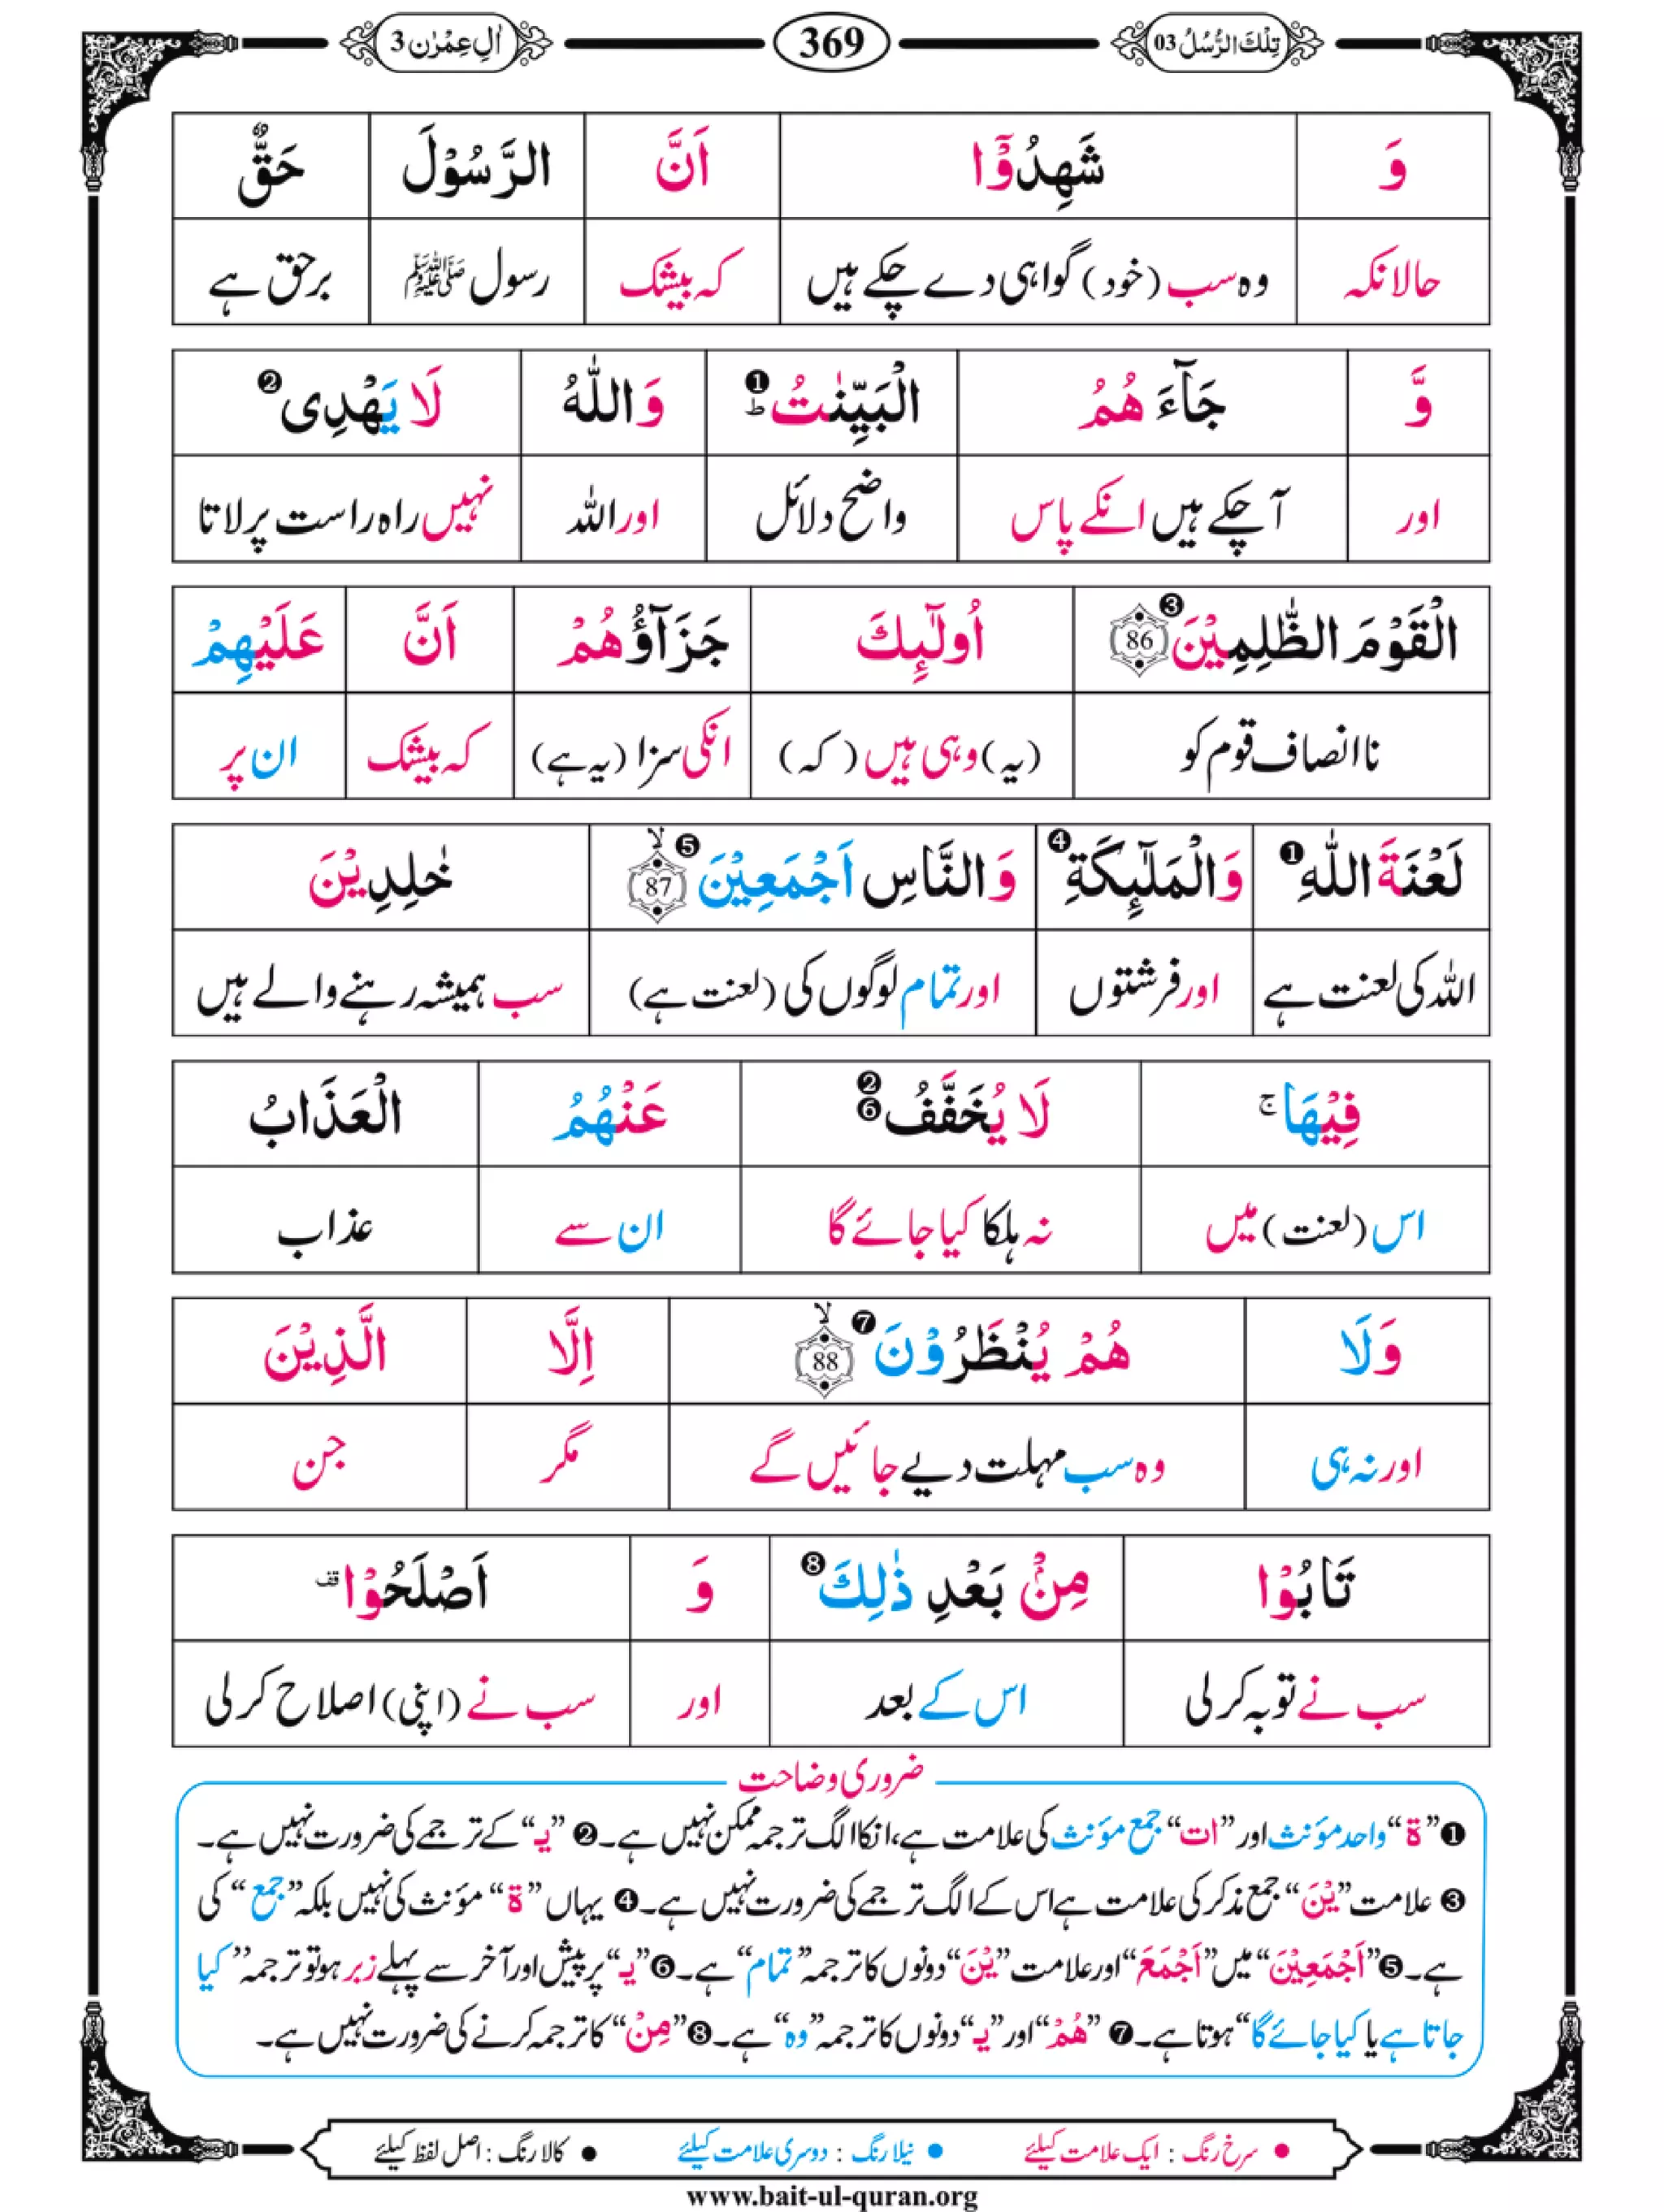 تِلْكَ الرُّسُلُ 03 369 اٰلِ عِمْرٰن 3
وَ شَهِدُوْۤا اَنَّ الرَّسُوْلَ حَقٌّ
حالانکہ وہ سب (خود) گواہی دے چکے ہیں کہ بیشک رسول ﷺ برحق ہے
وَّ جَآءَ هُمُ الْبَيِّنٰتُ ؕ❶ وَاللّٰهُ لَا يَهْدِى❷
اور آ چکے ہیں انکے پاس واضح دلائل اور اللہ نہیں راہ راست پر لاتا
الْقَوْمَ الظّٰلِمِيْنَ❸ 86 اُولٰٓئِكَ جَزَآؤُهُمْ اَنَّ عَلَيْهِمْ
نا انصاف قوم کو (یہ) وہی ہیں (کہ) انکی سزا (یہ ہے) کہ بیشک ان پر
لَعْنَةَ اللّٰهِ❶ وَالْمَلٰٓئِكَةِ❹ وَالنَّاسِ اَجْمَعِيْنَ❺ 87 ۙ خٰلِدِيْنَ
اللہ کی لعنت ہے اور فرشتوں اور تمام لوگوں کی (لعنت ہے) سب ہمیشہ رہنے والے ہیں
فِيْهَا ۚ لَا يُخَفَّفُ❷❻ عَنْهُمُ الْعَذَابُ
اس (لعنت) میں نہ ہلکا کیا جائے گا ان سے عذاب
وَلَا هُمْ يُنْظَرُوْنَ❼ 88 ۙ اِلَّا الَّذِيْنَ
اور نہ ہی وہ سب مہلت دیے جائیں گے مگر جن
تَابُوْا مِنْۢ بَعْدِ ذٰلِكَ❽ وَ اَصْلَحُوْا قف
سب نے توبہ کر لی اس کے بعد اور سب نے (اپنی) اصلاح کر لی
ضروری وضاحت
❶ ”ة“ واحد مؤنث اور ”ات“ جمع مؤنث کی علامت ہے، انکا الگ ترجمہ ممکن نہیں ہے۔ ❷ ”يـ“ کے ترجمے کی ضرورت نہیں ہے۔
❸ علامت ”يْنَ“ جمع مذکر کی علامت ہے اس کے الگ ترجمے کی ضرورت نہیں ہے۔ ❹ یہاں ”ة“ مؤنث کی نہیں بلکہ ”جمع“ کی
ہے۔ ❺ ”اَجْمَعِيْنَ“ میں ”اَجْمَعَ“ اور علامت ”يْنَ“ دونوں کا ترجمہ ”تمام“ ہے۔ ❻ ”يـ“ پر پیش اور آخر سے پہلے زبر ہو تو ترجمہ ”کیا
جاتا ہے یا کیا جائے گا“ ہوتا ہے۔ ❼ ”هُمْ“ اور ”يـ“ دونوں کا ترجمہ ”وہ“ ہے۔ ❽ ”مِنْ“ کا ترجمہ کرنے کی ضرورت نہیں ہے۔
● سرخ رنگ : ایک علامت کیلئے ● نیلا رنگ : دوسری علامت کیلئے ● کالا رنگ : اصل لفظ کیلئے
www.bait-ul-quran.org